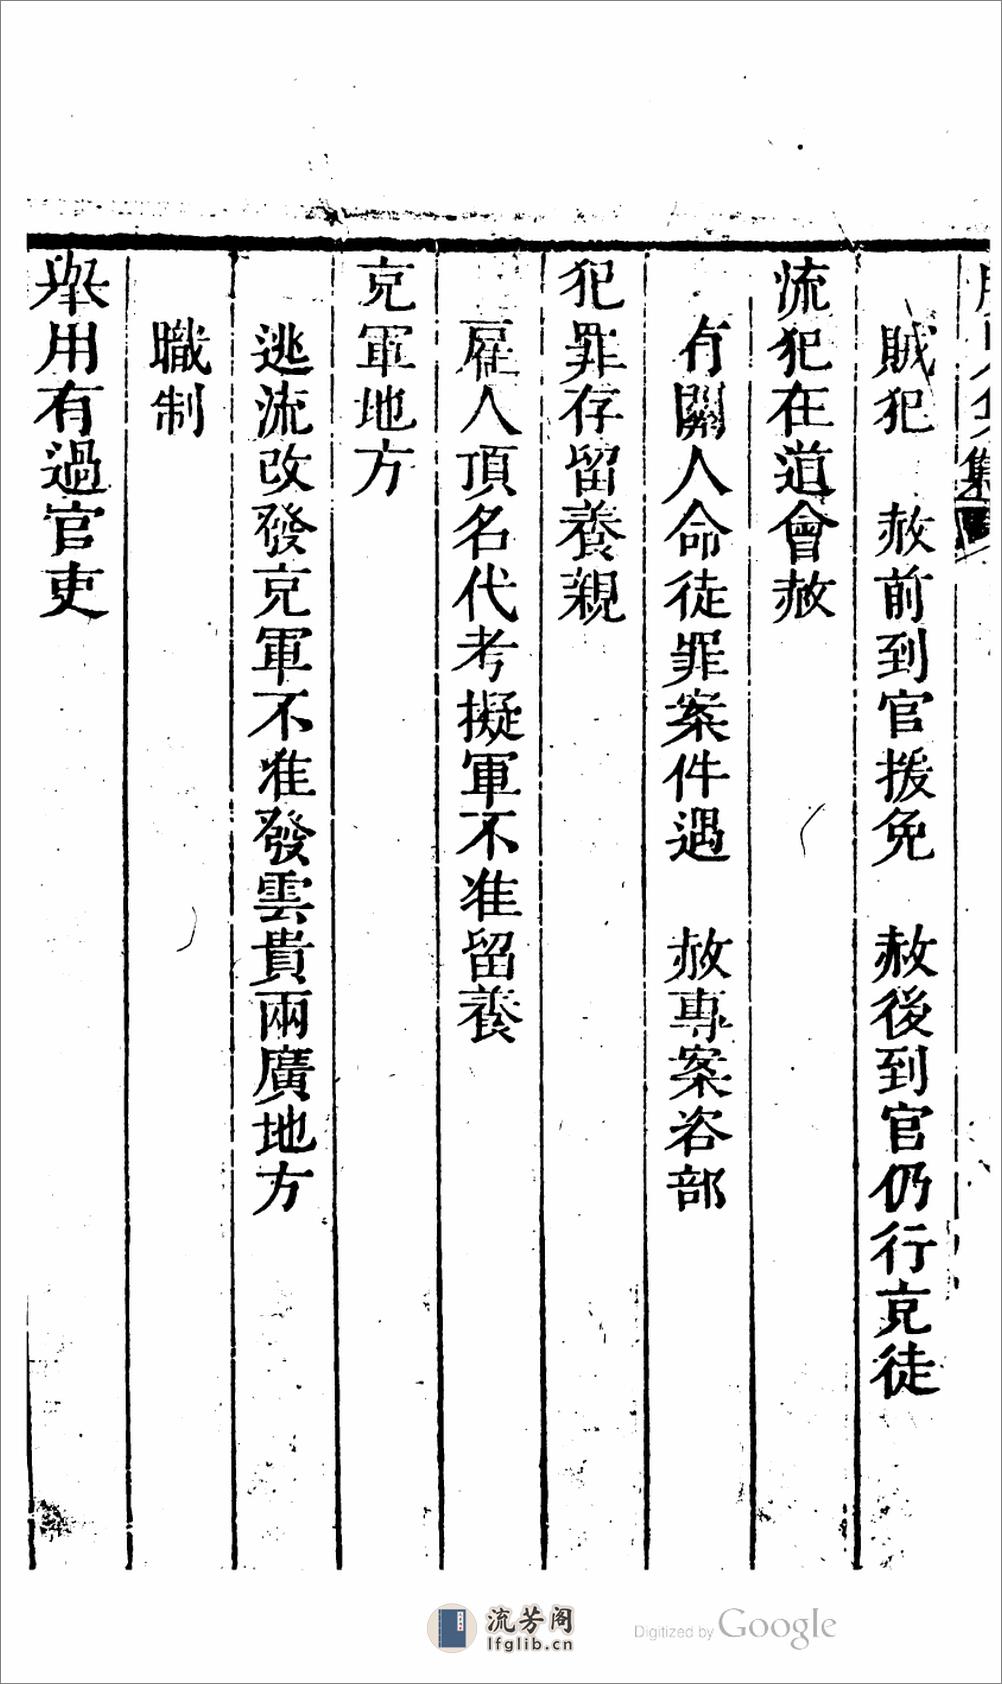 集
賊犯　赦前到官援免　赦後到官仍行充徒
流犯在道會赦
有關人命徒罪案件遇　赦專案咨部
犯罪存留養親
雇人頂名代考擬軍不准留養
充軍地方
逃流改發充軍不准發雲貴兩廣地方
職制
舉用有過官吏
流芳阁
lfglib.cn
Digitized by Google